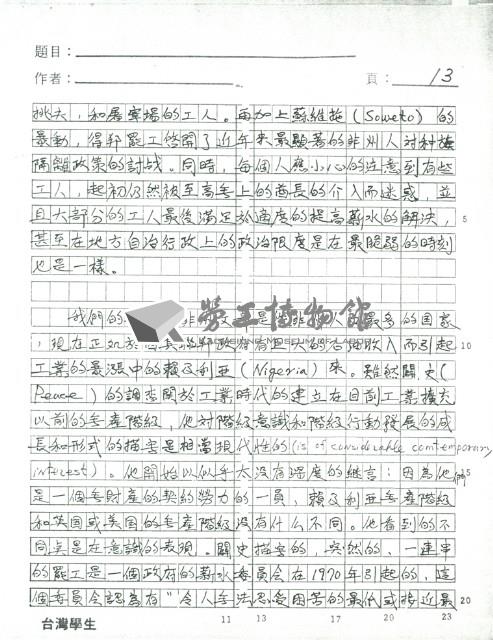 題目：
作者：
頁：13
挑夫，和屠宰場的工人。再加上蘇維拖（Soweto）的
暴動，得邦罷工啓開了近年來最顯著的非州人对种族
隔離政策的討战。同時，每個人應小心的注意到有些
工人，起初仍然被至高無上的酋長的介入而迷惑，並
且大部分的工人最後滿足於適度的提高薪水的解決，
甚至在地方自治行政上的政治限度是在最脆弱的時刻
也是一樣。
我們的 非 是 最多的国家
，現在正処於 政府有巨大的石油收入而引起
工業的最漲中的賴及利亜（Nigeria）來。雖然闗史（
Peace）的調查関於工業時代的建立在目前工業擴充
以前的無產階級，他对階級意識和階級行動發展的成
長和形式的描寫是相當現代性的（is of considerable contemporary
interest）。他開始以似乎太没有深度的 ：因為他們
是一個無財產的契約勞力的一員，賴及利亜無產階級
和英国或美国的無產階級没有什么不同。他看到的不
同奌是在意識的表現。闗史描寫的，突然的，一連串
的罷工是一個政府的薪水委員会在1970年引起的，這
個委員会認為有“令人無法忍受困苦的最低或接近最
勞工博物館
KAOHSIUNG MUSEUM OF LABOR
5
10
15
20
台灣學生
11 13 17 20 23